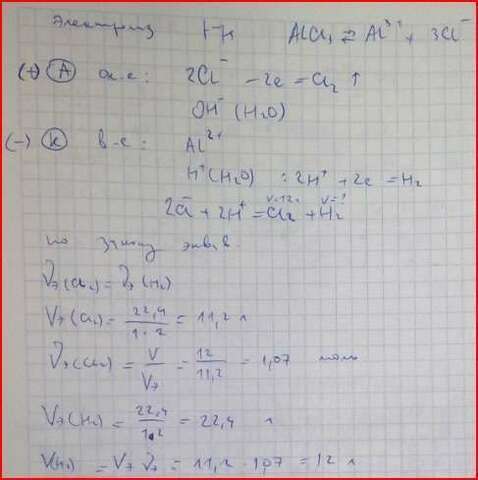 Электролиз AlCl₃ ⇄ Al³⁺ + 3Cl⁻
(+) A ок-е: 2Cl⁻ - 2e = Cl₂ ↑
OH⁻ (H₂O)
(-) К в-е: Al³⁺
H⁺(H₂O) : 2H⁺ + 2e = H₂
V=12л V=?
2Cl⁻ + 2H⁺ = Cl₂ + H₂
по закону эквив.
νэ(Cl₂) = νэ(H₂)
Vэ(Cl₂) = 22,4 / 1·2 = 11,2 л
νэ(Cl₂) = V / Vэ = 12 / 11,2 = 1,07 моль
Vэ(H₂) = 22,4 / 1·2 = 22,4 л
V(H₂) = Vэ νэ = 11,2 · 1,07 = 12 л